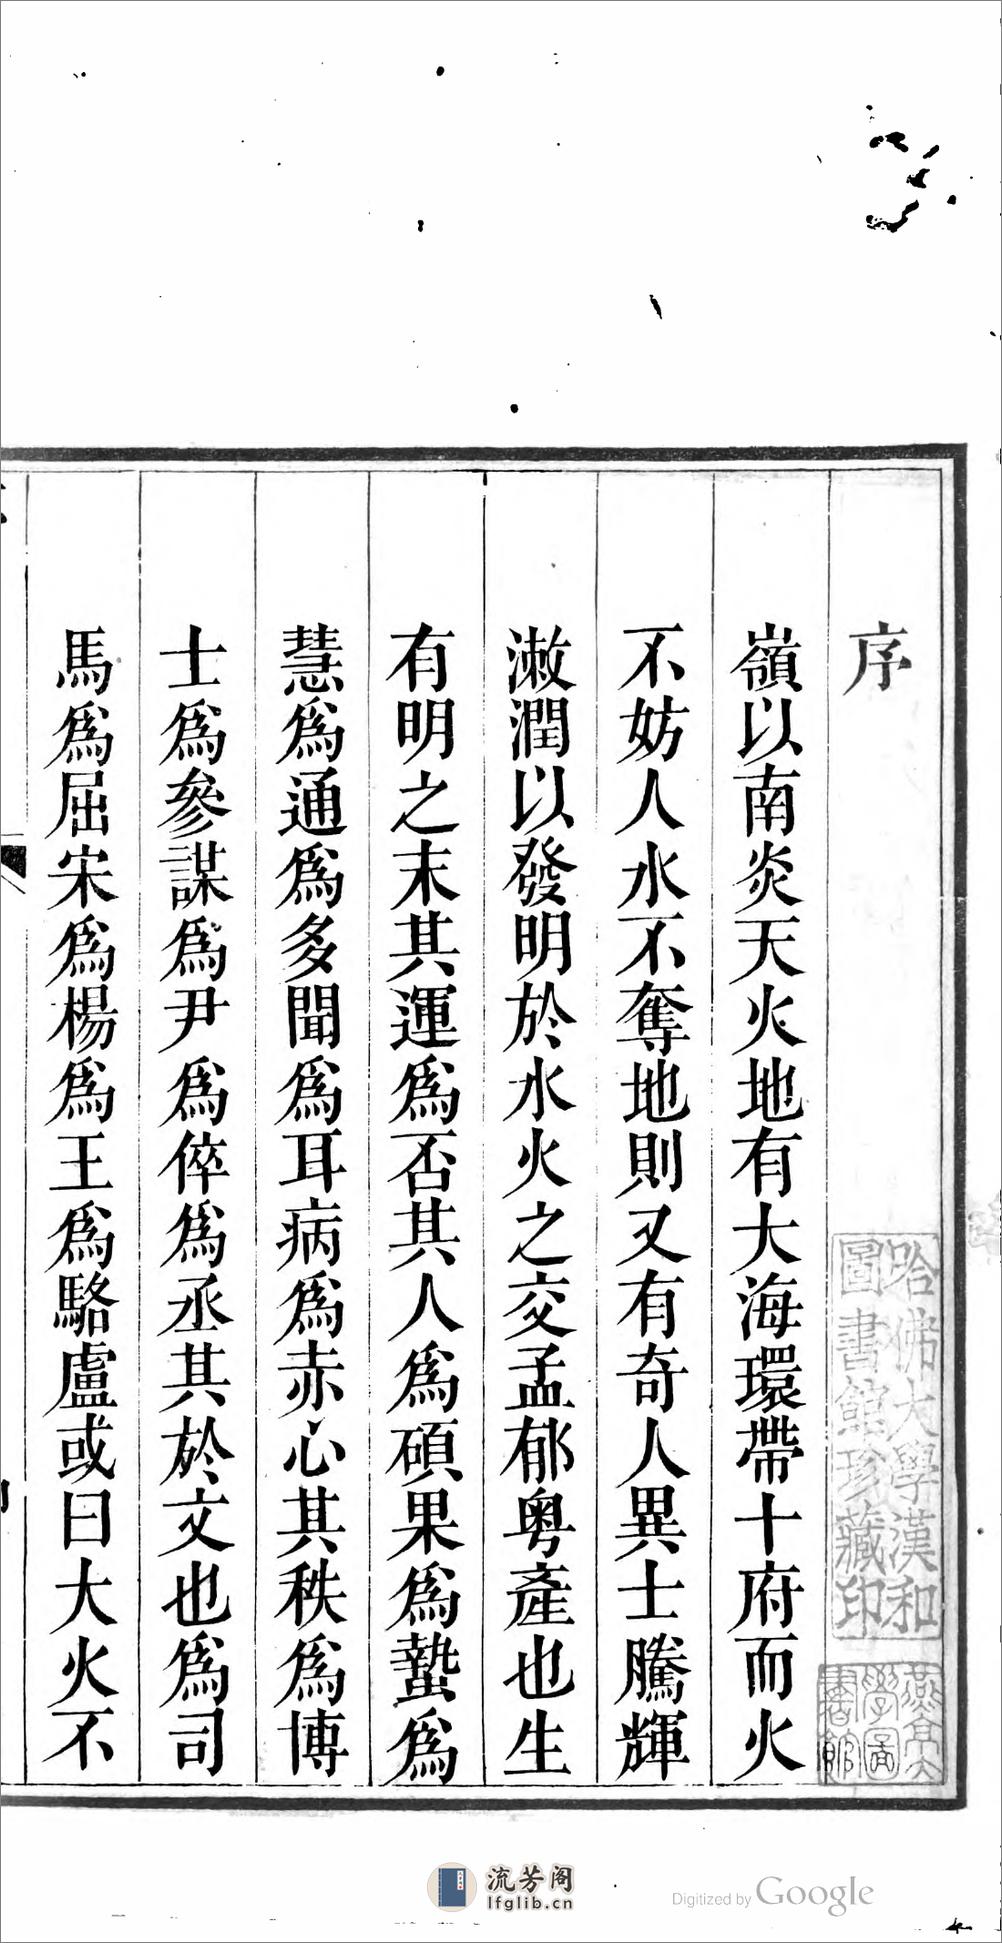 序
嶺以南炎天火地有大海環帶十府而火
不妨人水不奪地則又有奇人異士騰輝
漱潤以發明於水火之交孟郁粵產也生
有明之末其運爲否其人爲碩果爲蟄爲
慧爲通爲多聞爲耳病爲赤心其秩爲博
士爲參謀爲尹爲倅爲丞其於文也爲司
馬爲屈宋爲楊爲王爲駱盧或曰大火不
哈佛大學漢和
圖書館珍藏印
流芳阁
lfglib.cn
Digitized by Google